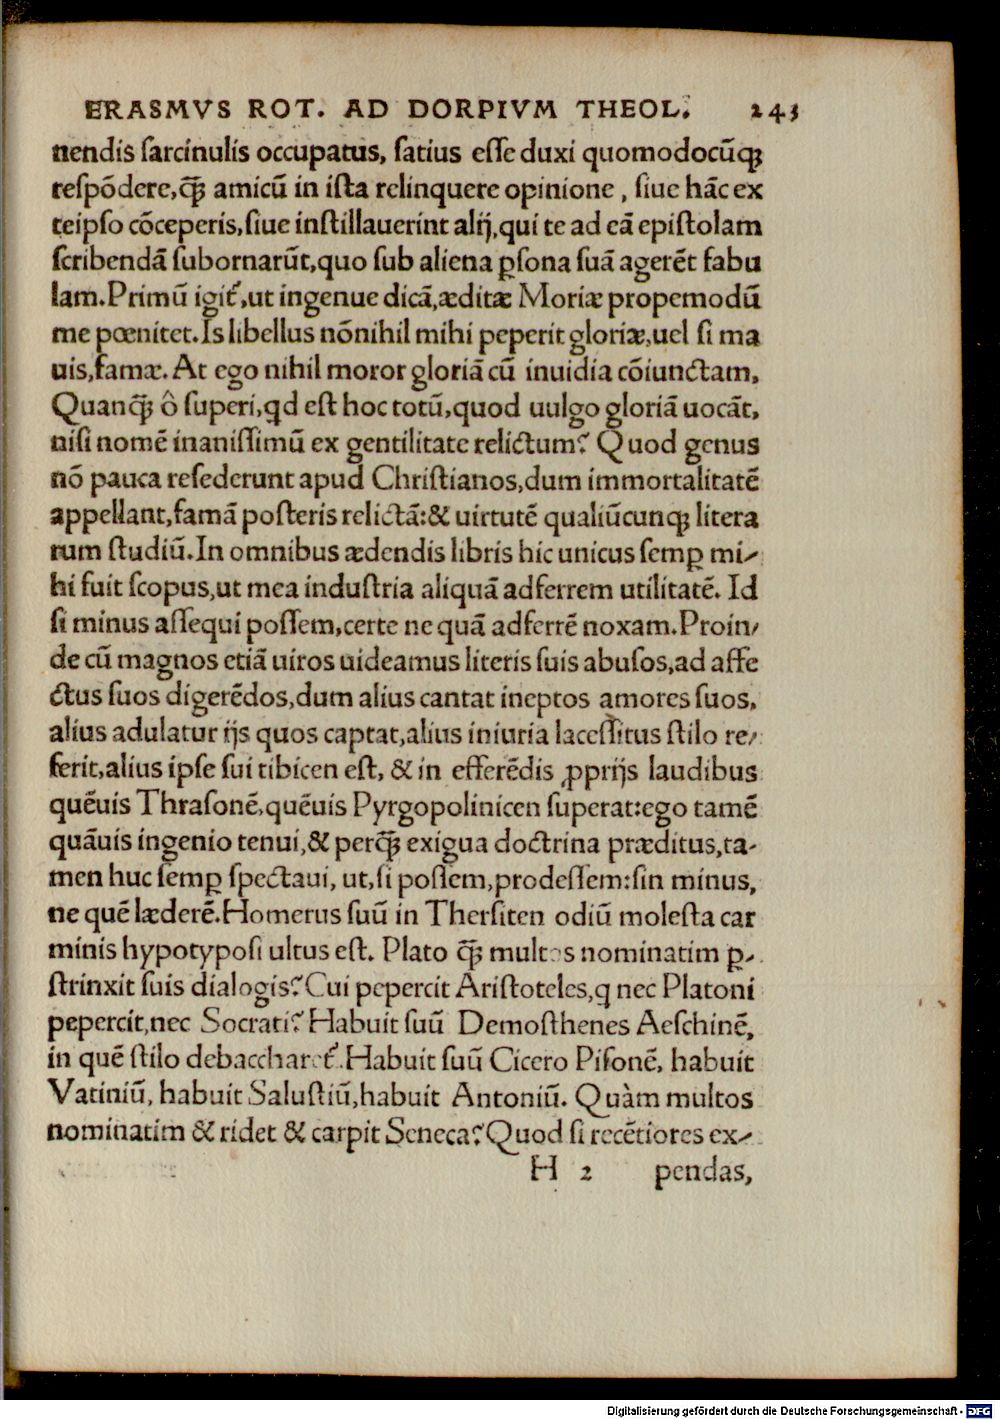 ERASMVS ROT. AD DORPIVM THEOL. 243
nendis ſarcinulis occupatus, ſatius eſſe duxi quomodocūq;
reſpōdere,q̄ꝫ amicū in iſta relinquere opinione, ſiue hāc ex
teipſo cōceperis,ſiue inſtillauerint alij,qui te ad eā epiſtolam
ſcribendā ſubornarūt,quo ſub aliena ꝑſona ſuā agerēt fabu
lam.Primū igit᷑,ut ingenue dicā,æditæ Moriæ propemodū
me pœnitet.Is libellus nōnihil mihi peperit gloriæ,uel ſi ma
uis,famæ. At ego nihil moror gloriā cū inuidia cōiunctam,
Quanq̄ꝫ ô ſuperi,qd eſt hoc totū,quod uulgo gloriā uocāt,
niſi nomē inaniſſimū ex gentilitate relictum? Quod genus
nō pauca reſederunt apud Chriſtianos,dum immortalitatē
appellant,famā poſteris relictā:& uirtutē qualiūcunq; litera
rum ſtudiū.In omnibus ædendis libris hic unicus ſemꝑ mi-
hi fuit ſcopus,ut mea induſtria aliquā adferrem utilitatē. Id
ſi minus aſſequi poſſem,certe ne quā adferrē noxam.Proin/
de cū magnos etiā uiros uideamus literis ſuis abuſos,ad affe
ctus ſuos digerēdos,dum alius cantat ineptos amores ſuos,
alius adulatur ijs quos captat,alius iniuria laceſſitus ſtilo re/
ferit,alius ipſe ſui tibicen eſt, & in efferēdis ꝓprijs laudibus
quēuis Thraſonē,quēuis Pyrgopolinicen ſuperat:ego tamē
quāuis ingenio tenui,& perq̄ꝫ exigua doctrina præditus,ta-
men huc ſemꝑ ſpectaui, ut,ſi poſſem,prodeſſem:ſin minus,
ne quē læderē.Homerus ſuū in Therſiten odiū moleſta car
minis hypotypoſi ultus eſt. Plato q̄ꝫ multos nominatim ꝑ-
ſtrinxit ſuis dialogis? Cui pepercit Ariſtoteles,q nec Platoni
pepercit,nec Socrati? Habuit ſuū Demoſthenes Aeſchinē,
in quē ſtilo debaccharet᷑.Habuit ſuū Cicero Piſonē, habuit
Vatiniū, habuit Saluſtiū,habuit Antoniū. Quàm multos
nominatim & ridet & carpit Seneca? Quod ſi recētiores ex-
H 2 pendas,
Digitalisierung gefördert durch die Deutsche Forschungsgemeinschaft - DFG